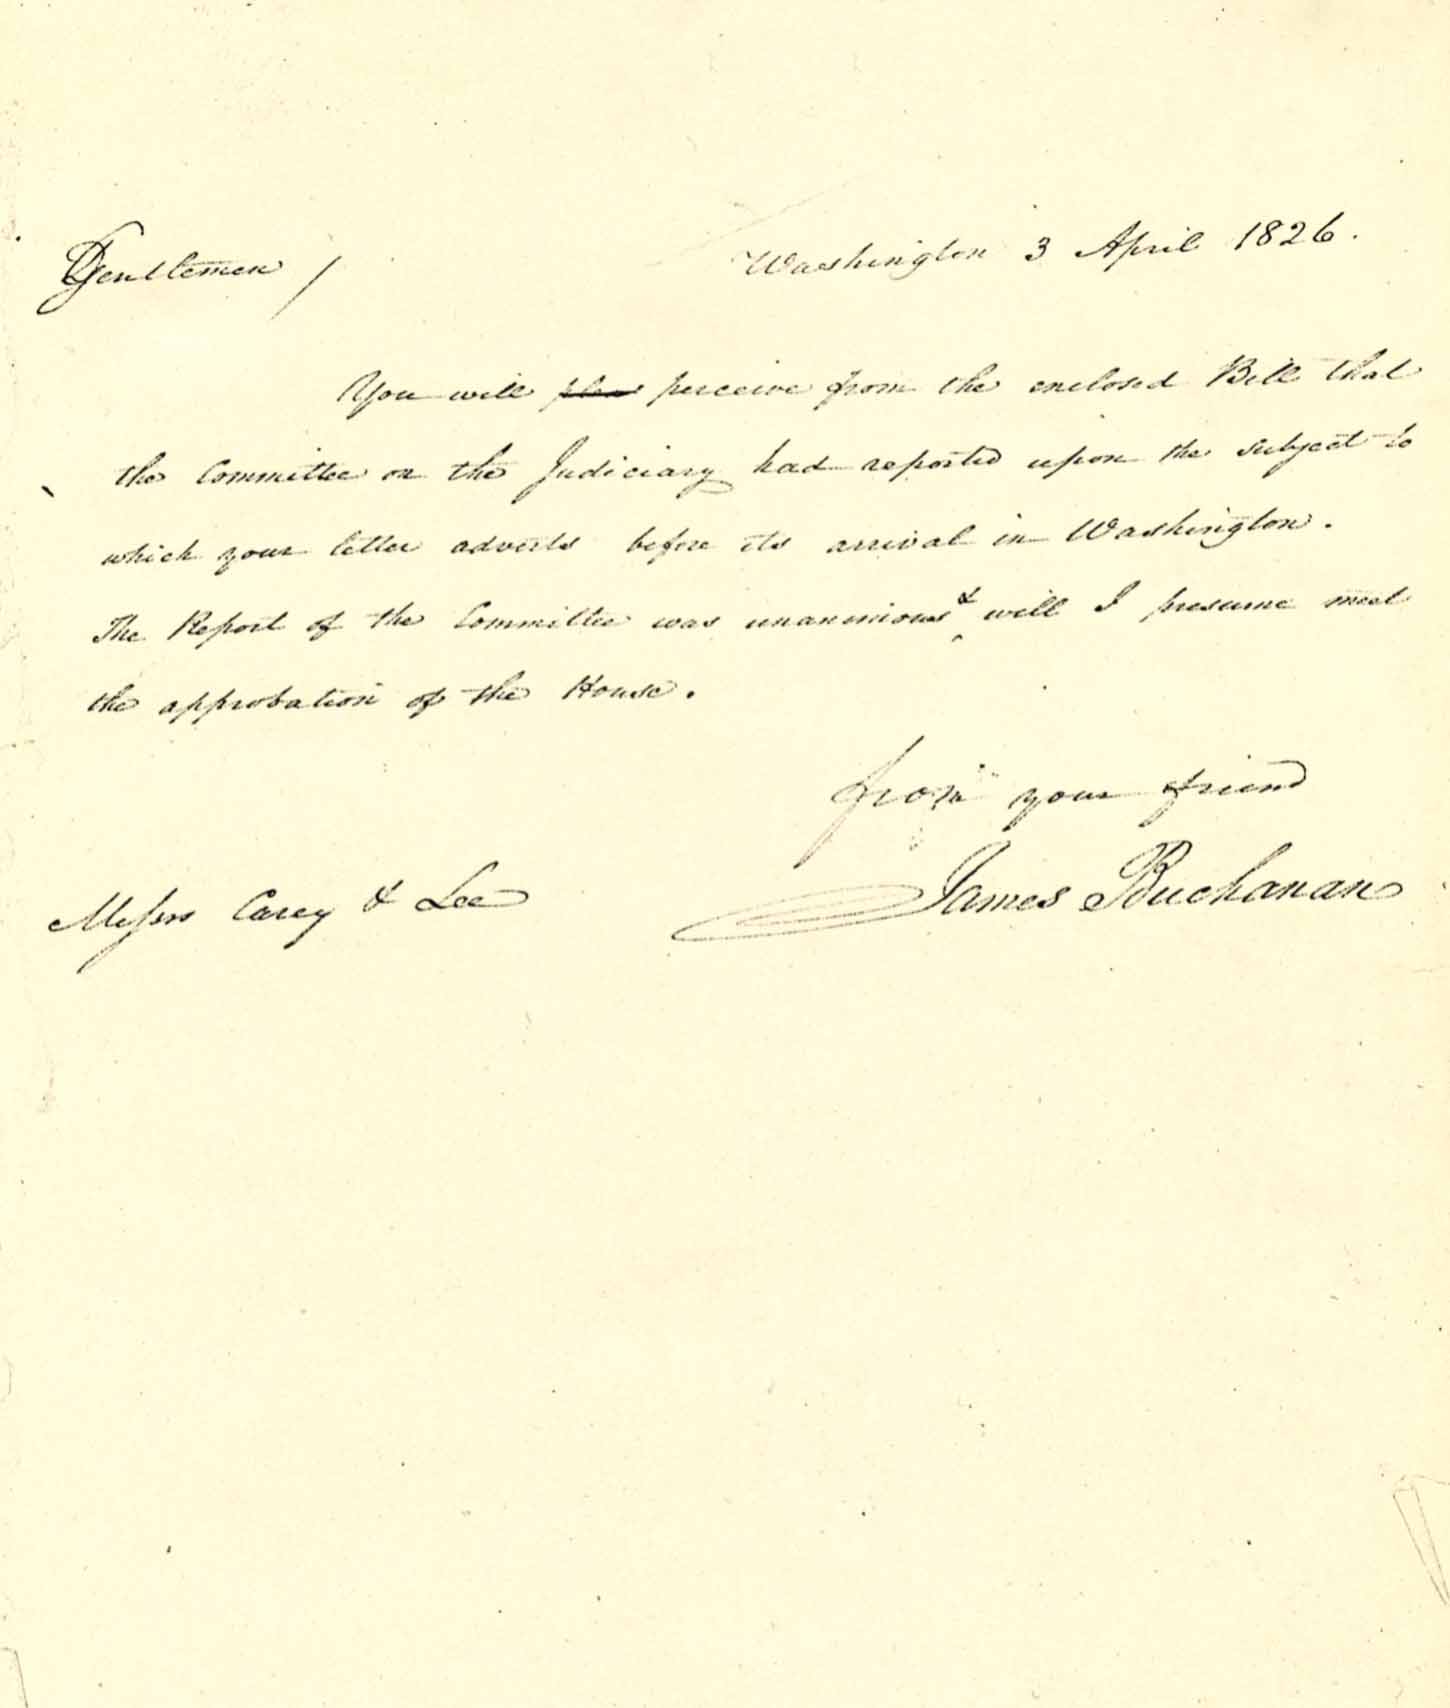 Washington 3 April 1826.
Gentlemen /
You will plea perceive from the enclosed Bill that
the Committee on the Judiciary had reported upon the subject to
which your letter adverts before its arrival in Washington.
The Report of the Committee was unanimous & will I presume meet
the approbation of the House.
from your friend
James Buchanan
Messrs Carey & Lea